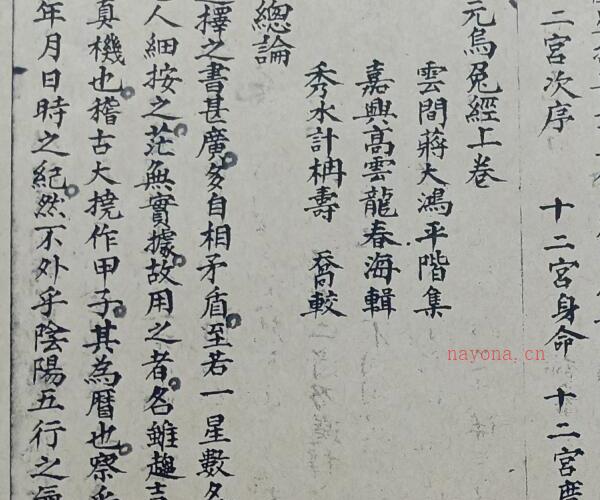 二宮次序　十二宮身命　十二宮度
元烏兔經上卷
雲間蔣大鴻平階集
嘉興高雲龍春海輯
秀水計柟壽喬較
總論
選擇之書甚廣多自相矛盾至若一星數名
人細按之茫無實據故用之者名雖趨吉
真機也稽古大撓作甲子其為曆也察
年月日時之紀然不外乎陰陽五行之氣
nayona.cn